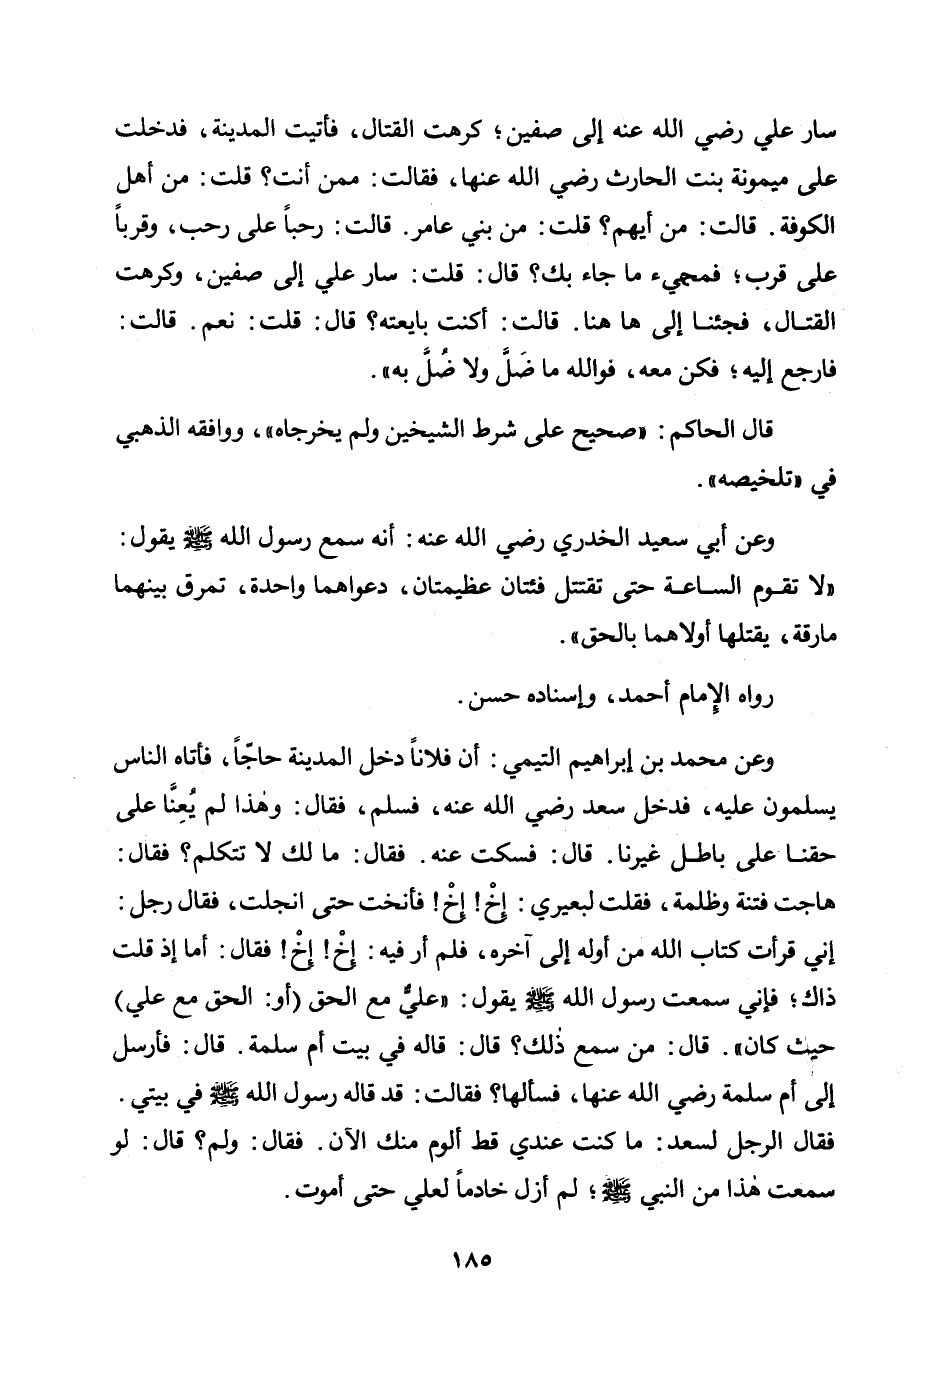 سار علي رضي الله عنه إلى صفين؛ كرهت القتال، فأتيت المدينة، فدخلت
على ميمونة بنت الحارث رضي الله عنها، فقالت: ممن أنت؟ قلت: من أهل
الكوفة. قالت: من أيهم؟ قلت: من بني عامر. قالت: رحباً على رحب، وقرباً
على قرب؛ فمجيء ما جاء بك؟ قال: قلت: سار علي إلى صفين، وكرهت
القتال، فجئنا إلى ها هنا. قالت: أكنت بايعته؟ قال: قلت: نعم. قالت:
فارجع إليه؛ فكن معه، فوالله ما ضَلَّ ولا ضُلَّ به».
قال الحاكم: «صحيح على شرط الشيخين ولم يخرجاه»، ووافقه الذهبي
في «تلخيصه».
وعن أبي سعيد الخدري رضي الله عنه: أنه سمع رسول الله ﷺ يقول:
«لا تقوم الساعة حتى تقتتل فئتان عظيمتان، دعواهما واحدة، تمرق بينهما
مارقة، يقتلها أولاهما بالحق».
رواه الإمام أحمد، وإسناده حسن.
وعن محمد بن إبراهيم التيمي: أن فلاناً دخل المدينة حاجّاً، فأتاه الناس
يسلمون عليه، فدخل سعد رضي الله عنه، فسلم، فقال: وهٰذا لم يُعِنَّا على
حقنا على باطل غيرنا. قال: فسكت عنه. فقال: ما لك لا تتكلم؟ فقال:
هاجت فتنة وظلمة، فقلت لبعيري: إِخْ! إِخْ! فأنخت حتى انجلت، فقال رجل:
إني قرأت كتاب الله من أوله إلى آخره، فلم أر فيه: إِخْ! إِخْ! فقال: أما إذ قلت
ذاك؛ فإني سمعت رسول الله ﷺ يقول: «عليٌّ مع الحق (أو: الحق مع علي)
حيث كان». قال: من سمع ذٰلك؟ قال: قاله في بيت أم سلمة. قال: فأرسل
إلى أم سلمة رضي الله عنها، فسألها؟ فقالت: قد قاله رسول الله ﷺ في بيتي.
فقال الرجل لسعد: ما كنت عندي قط ألوم منك الآن. فقال: ولم؟ قال: لو
سمعت هٰذا من النبي ﷺ؛ لم أزل خادماً لعلي حتى أموت.
١٨٥